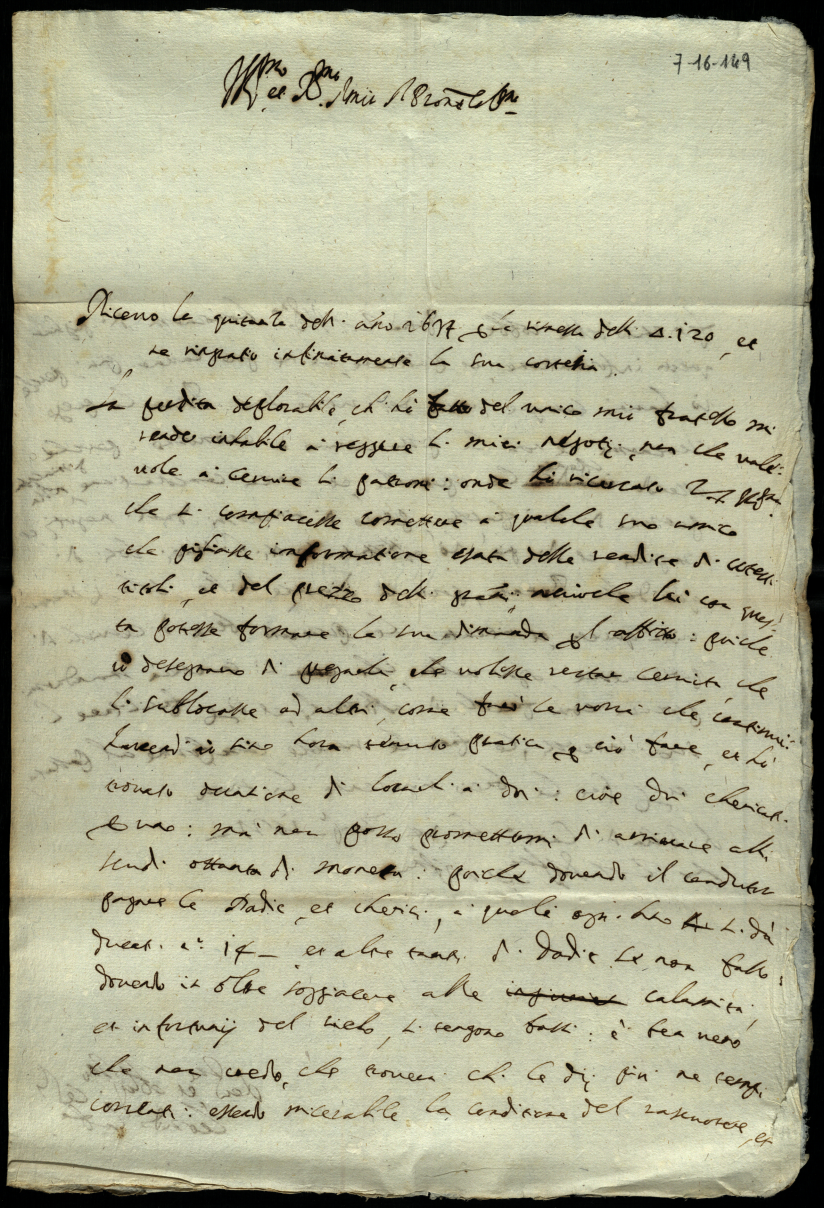 7-16-149
Ill.mo et R.mo
Riceuo la quitanza dell' año 1677 p la rimessa delli Δ. 120, et
ne ringratio infinitamente la sua cortesia.
La perdita deplorabile, ch' hò fatto del unico mio fratello mi
rende inhabile à reggere li miei negotij, non che uale=
uole à seruire li patroni: onde hò ricercato
che si compiacesse comettere à qualche suo amico
che pigliasse informatione esata delle rendite di cotesti
titoli, et del prezzo delli grani, accioche lei con ques=
ta potesse formare la sua dimanda p l'affitto: poiche
io desegnauo di pregarla, che uolesse restar seruita, che
li sublocasse ad altri, come
hauendo io sino hora tenuto pratica p ciò fare, et hò
trouato occatione di locarli à doi: cioè doi chiericati
p uno: mà non posso promettermi di arriuare alli
scudi ottanta di moneta: poiche douendo il conduttor
pagare le Dadie, et chierici, à quali ogn' Año si dà
ducati n.o 14 et altre tanti di Dadie se non fallo:
douendo in oltre soggiacere alle calamità,
et infortunij del cielo, si tengono bassi: è ben uero
che non credo, che trouerà chi le dij più ne tempi
correnti: essendo miserabile la conditione del, et